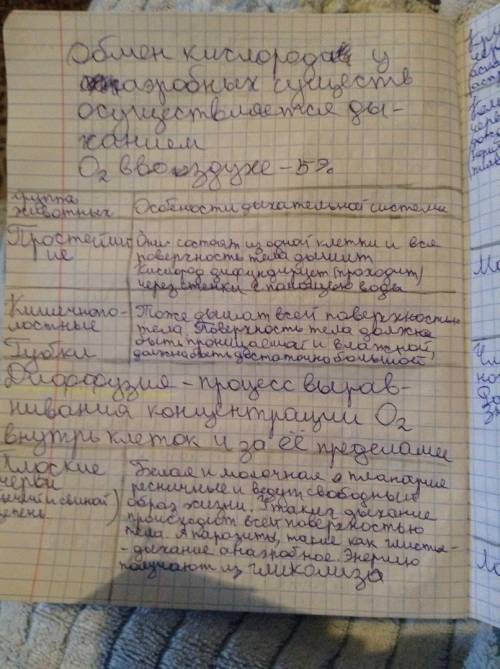 Обмен кислорода у
аэробных существ
осуществляется ды-
ханием
O₂ в воздухе - 5%
группа
животных
Особености дыхательной системы
Простейш
ие
Они состоят из одной клетки и вся
поверхность тела дышит
Кислород дифундирует (проходит)
через стенки с помощью воды
Кишечнопо-
лостные
Губки
Тоже дышат всей поверхностью
тела. Поверхность тела должна
быть проницаемой и влажной,
должно быть достаточно большой
Диффузия - процесс вырав-
нивания концентрации O₂
внутрь клеток и за её пределами
Плоские
черви
и свиной
цепень)
Белая и молочная планария
ресничные и ведут свободный
образ жизни. У таких дыхание
происходит всей поверхностью
тела. А паразиты, такие как глисты -
- дыхание анаэробное. Энергию
получают из гликолиза